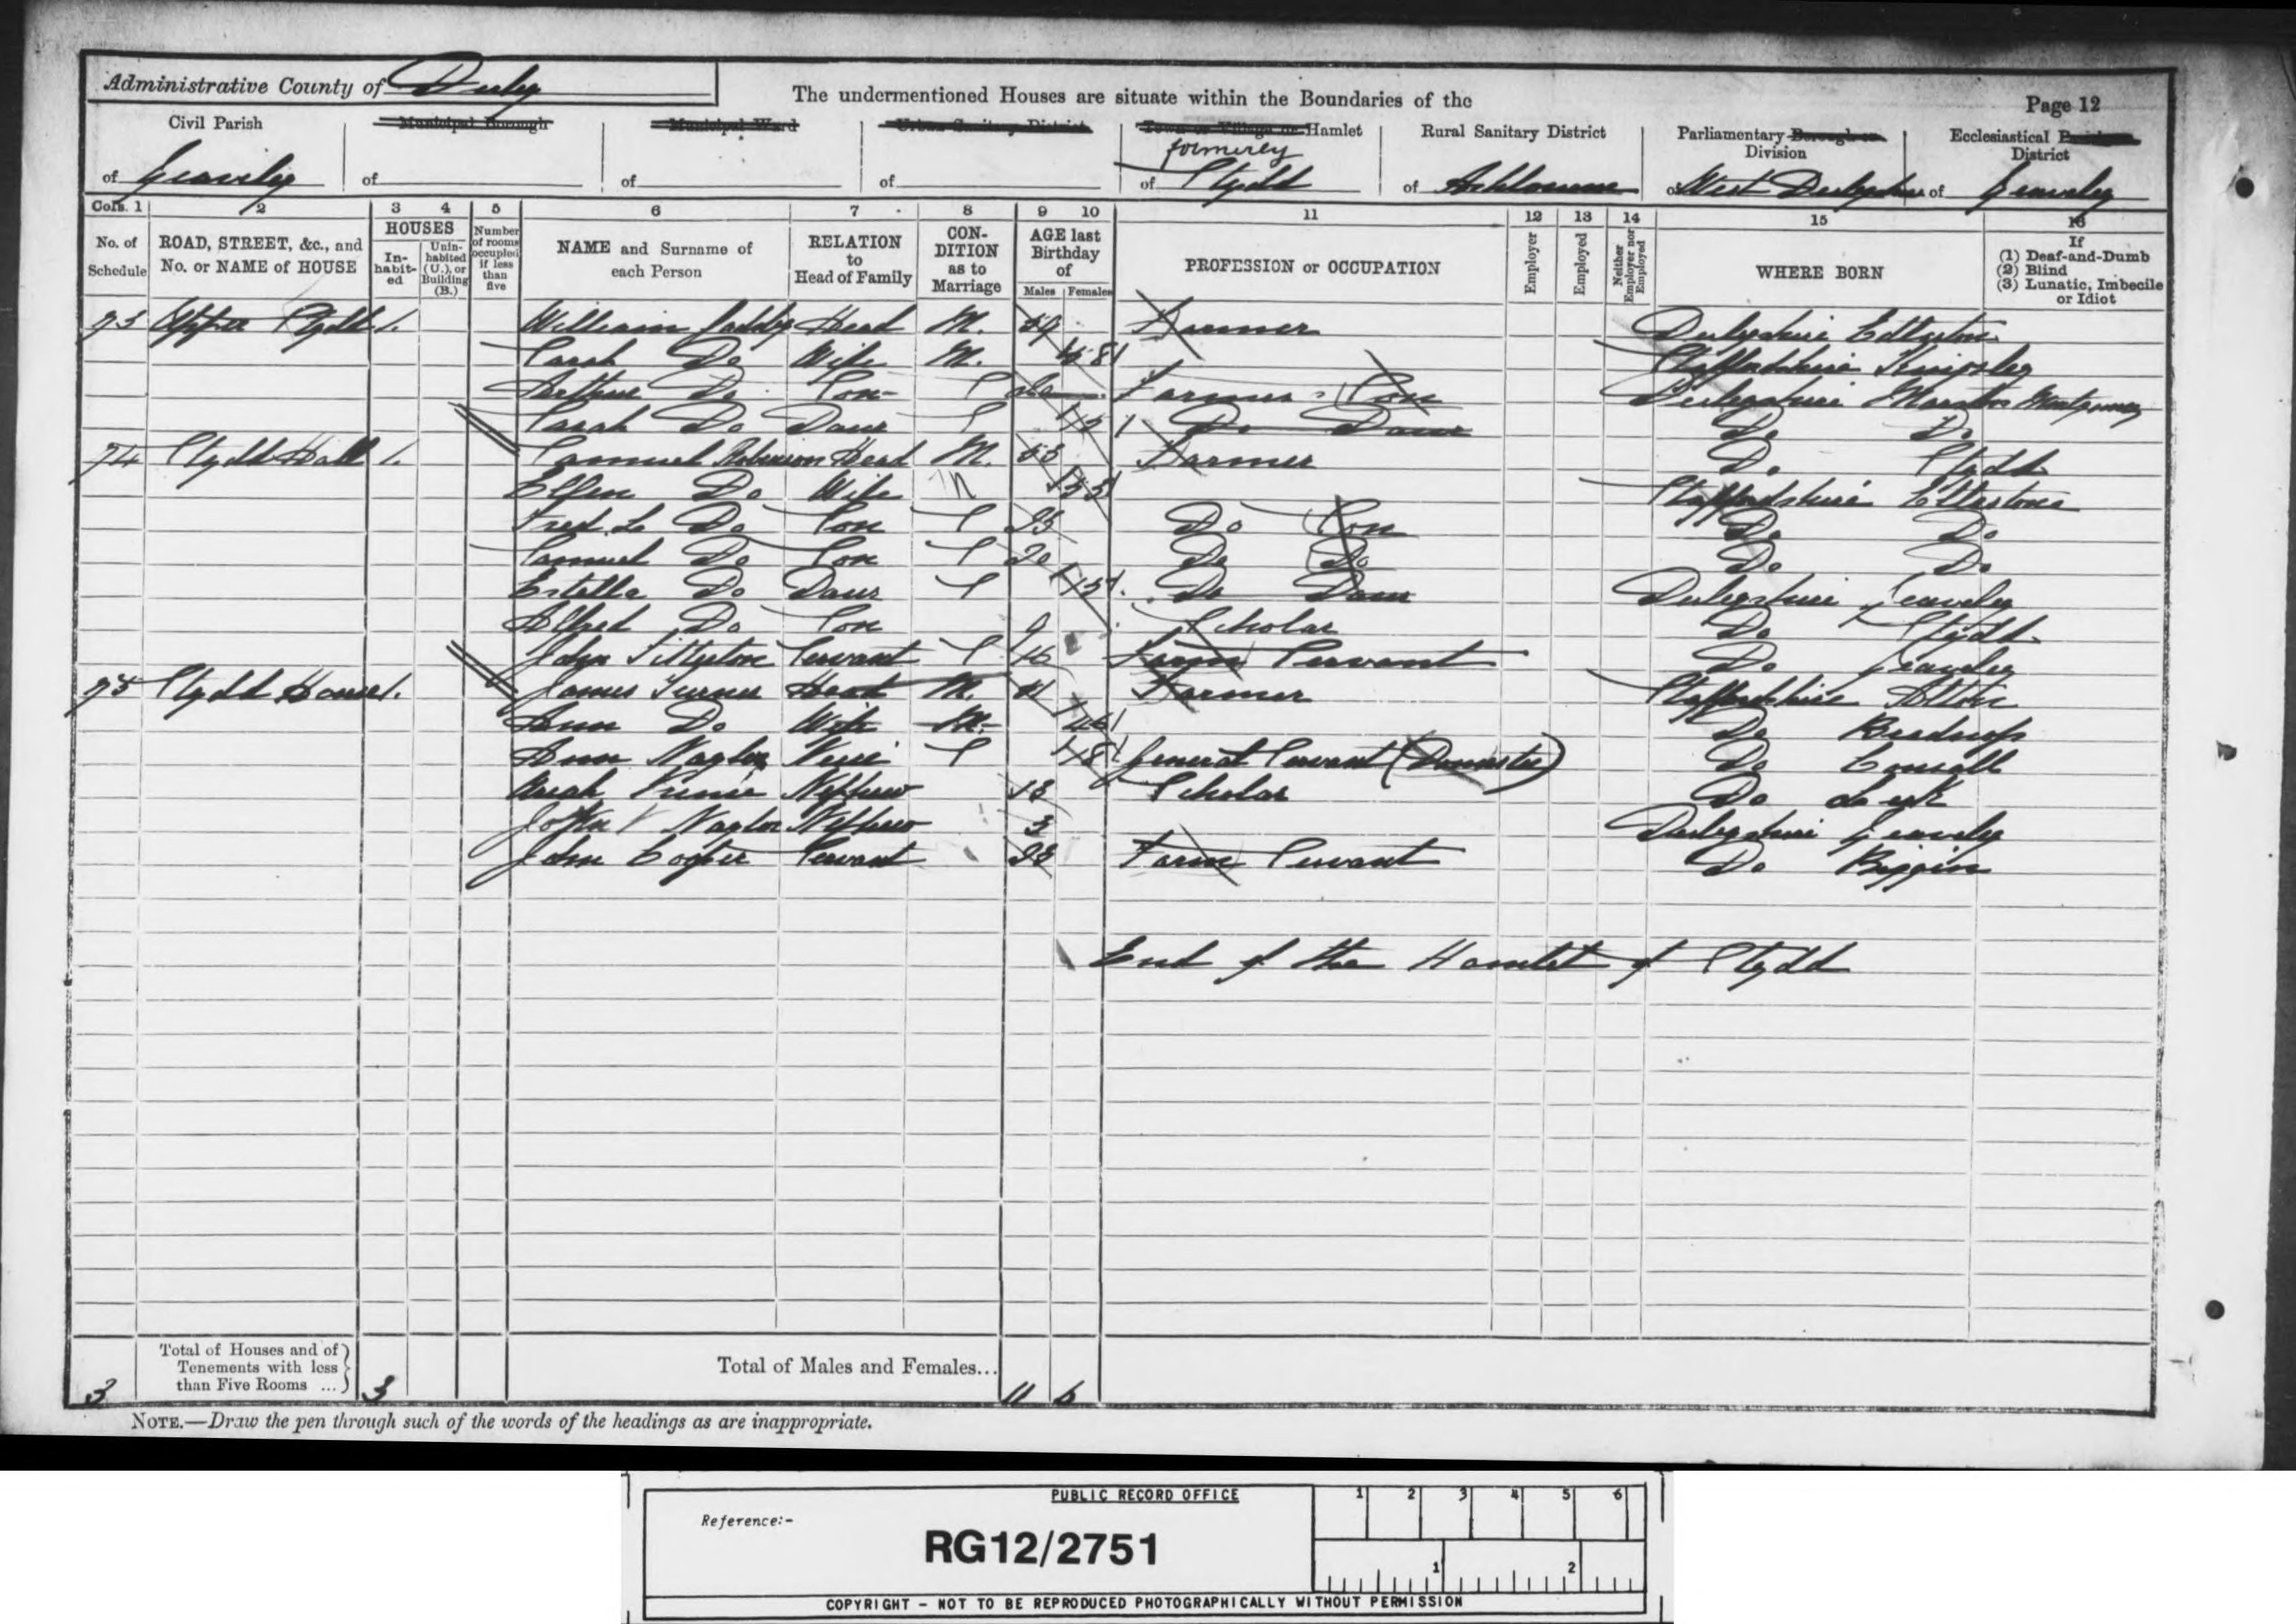 Administrative County of Derby
The undermentioned Houses are situate within the Boundaries of the
Page 12
Civil Parish of Yeaveley
Municipal Borough of
Municipal Ward of
Urban Sanitary District of
Town or Village or Hamlet formerly of Stydd
Rural Sanitary District of Ashbourne
Parliamentary Borough or Division of West Derbyshire
Ecclesiastical Parish or District of Yeaveley
Cols. 1 2 3 4 5 6 7 8 9 10 11 12 13 14 15 16
No. of Schedule
ROAD, STREET, &c., and No. or NAME of HOUSE
HOUSES
Inhabited
Uninhabited (U.), or Building (B.)
Number of rooms occupied if less than five
NAME and Surname of each Person
RELATION to Head of Family
CONDITION as to Marriage
AGE last Birthday of
Males Females
PROFESSION or OCCUPATION
Employer
Employed
Neither Employer nor Employed
WHERE BORN
If
(1) Deaf-and-Dumb
(2) Blind
(3) Lunatic, Imbecile or Idiot
73 Upper Stydd 1. William Head M. 59 Farmer Derbyshire Edlaston
Sarah Do Wife M. 48 Staffordshire Kingsley
Arthur Do Son S Farmer's Son Derbyshire Marston Montgomery
Sarah Do Daur S Do Daur Do Do
74 Stydd Hall 1. Samuel Robinson Head M. 53 Farmer Do Stydd
Ellen Do Wife M Staffordshire Ellastone
Fred. L. Do Son S 25 Do Son Do Do
Samuel Do Son S 20 Do Do Do Do
Estella Do Daur S 15 Do Daur Derbyshire Yeaveley
Alfred Do Son 9 Scholar Do Stydd
John Titterton Servant S 16 Farm Servant Do Yeaveley
75 Stydd House 1. James Turner Head M. Farmer Staffordshire Alton
Ann Do Wife M. 46 Do
Ann Naylor Niece S 18 General Servant (Domestic) Do Consall
Nephew 13 Scholar Do Leek
John Naylor Nephew 3 Derbyshire Yeaveley
John Servant 28 Farm Servant Do Biggin
End of the Hamlet of Stydd
3 Total of Houses and of Tenements with less than Five Rooms ... 3
Total of Males and Females... 11 6
NOTE.—Draw the pen through such of the words of the headings as are inappropriate.
PUBLIC RECORD OFFICE
1 2 3 4 5 6
Reference:-
RG12/2751
1 2
COPYRIGHT - NOT TO BE REPRODUCED PHOTOGRAPHICALLY WITHOUT PERMISSION